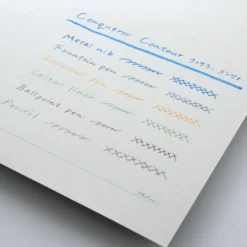 Conqueror Contour
Metal nib
Fountain pen
Rollerball pen
Colour liner
Ballpoint pen
Pencil